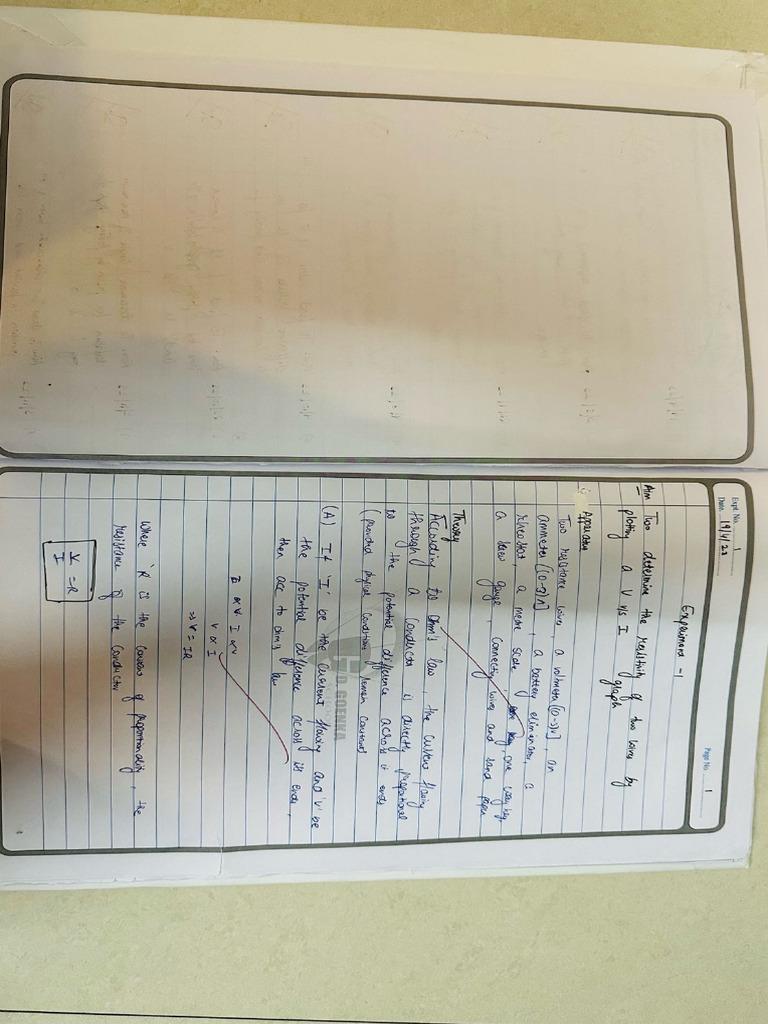 Expt. No. 1
Date 19/4/23
Page No. 1
Experiment - 1
Aim Two determine the resistivity of two wires by
plotting a V v/s I graph
Apparatus
Two resistance wires, a voltmeter [(0-3)V], an
ammeter [(0-3)A], a battery eliminator, a
rheostat, a metre scale, one way key,
a screw gauge, connecting wires and sand paper
Theory
According to Ohm's law, the current flowing
through a conductor is directly propotional
to the potential difference across it ends
(provided physical conditions remain constant)
(A) If 'I' be the current flowing and 'V' be
the potential difference across its ends,
then acc to ohms law
I α V
V α I
⇒ V = IR
Where 'R is the constant of proportionality, the
resistance of the conductor
V/I = R
G D GOENKA